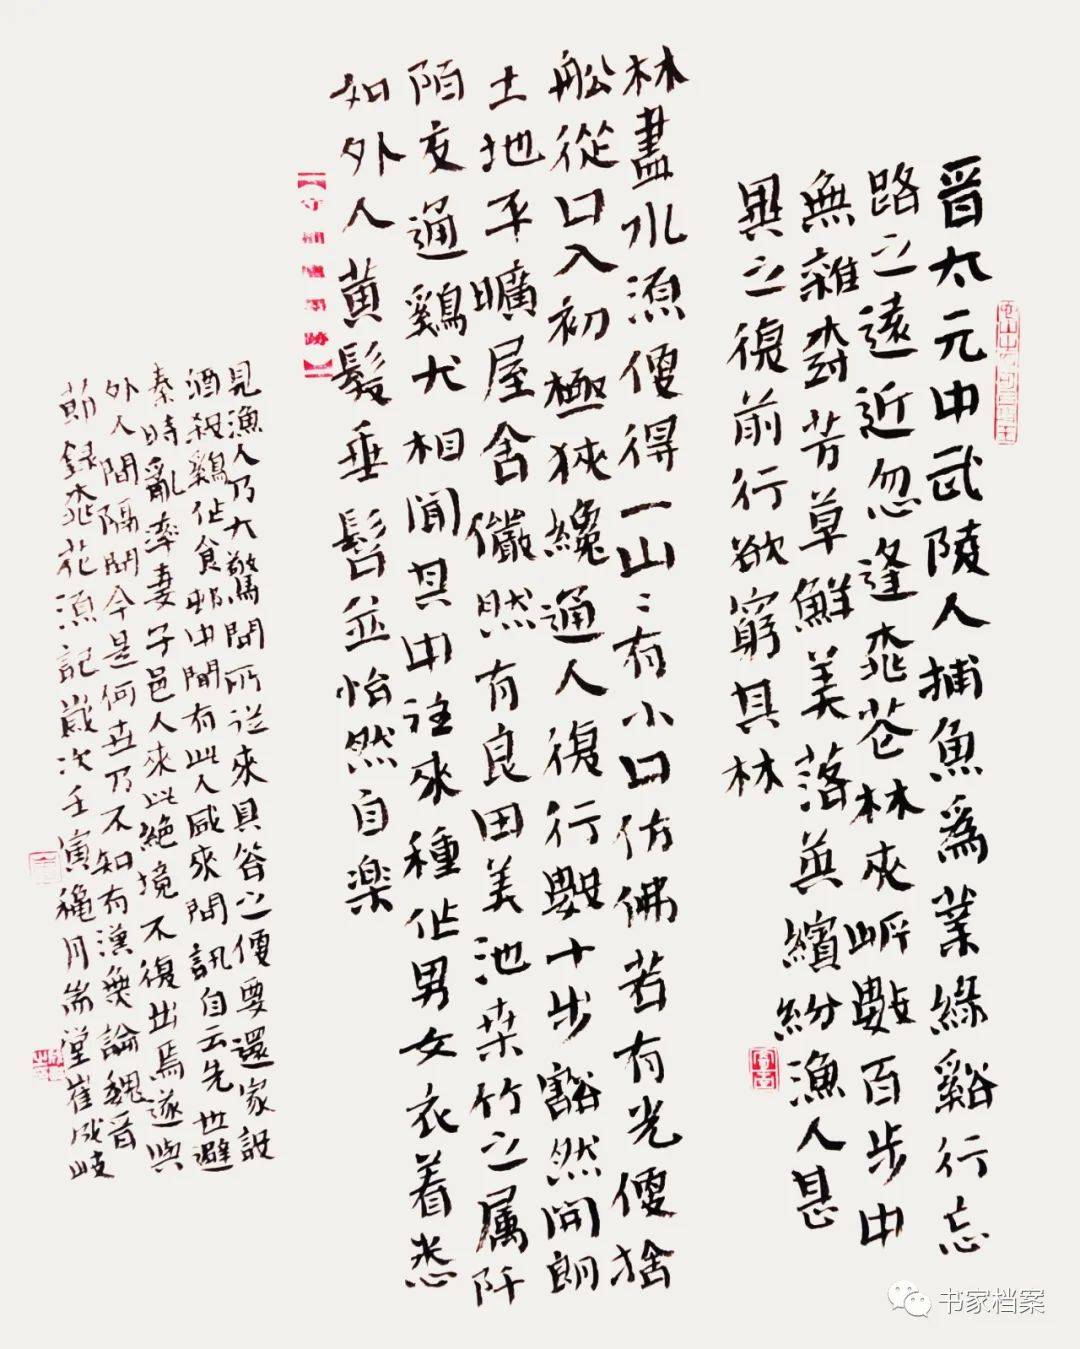 晉太元中武陵人捕魚爲業緣谿行忘
路之遠近忽逢桃花林夾岸數百步中
無雜樹芳草鮮美落英繽紛漁人甚
異之復前行欲窮其林
林盡水源便得一山〻有小口仿佛若有光便捨
船從口入初極狹纔通人復行數十步豁然開朗
土地平曠屋舍儼然有良田美池桑竹之属阡
陌交通鷄犬相聞其中往來種作男女衣着悉
如外人黄髮垂髫並怡然自樂
見漁人乃大驚問所從來具答之便要還家設
酒殺鷄作食邨中聞有此人咸來問訊自云先世避
秦時亂率妻子邑人來此絶境不復出焉遂與
外人間隔問今是何世乃不知有漢無論魏晉
節錄桃花源記歲次壬寅龝月堂崔成岐
书家档案